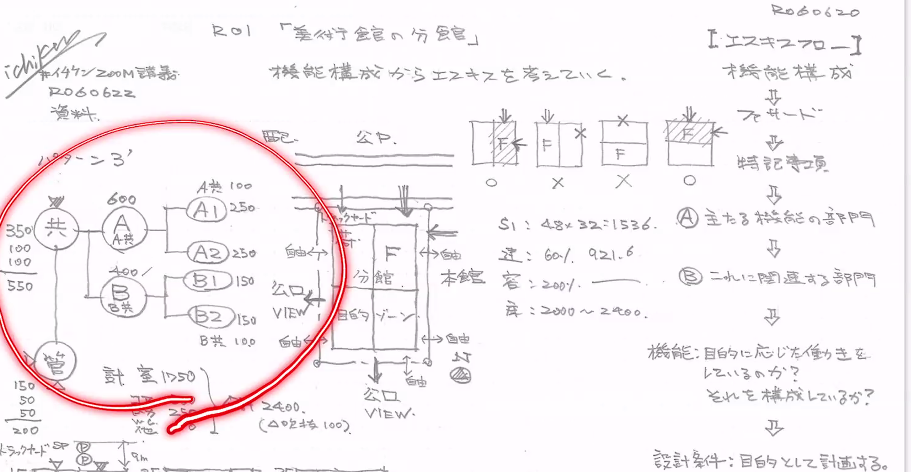 R060620
R01 「美術館の分館」
【エスキスフロー】
ichiken
#イチケンZOOM講義
R060622
資料
機能構成からエスキスを考えていく.
機能構成
ファサード
特記事項
Ⓐ 主たる機能の部門
Ⓑ これに関連する部門
機能:目的に応じた働きを
しているのか?
それを構成しているか?
設計条件:目的として計画する。
パターン3'
共
350
100
100
550
600
A
A共
A共 100
A1 250
A2 250
400
B
B共
B1 150
B2 150
B共 100
管
150
50
50
200
計 室1750
2400
100)
公P.
トラックヤード
F
分館
目的ゾーン
自由
自由
自由
自由
自由
本館
公口
VIEW
公口
VIEW.
F
F
F
F
○
×
×
○
S1:48×32=1536.
建:60% 921.6
容:200%
床:2000~2400.
トラックヤード SP
P
P
9m